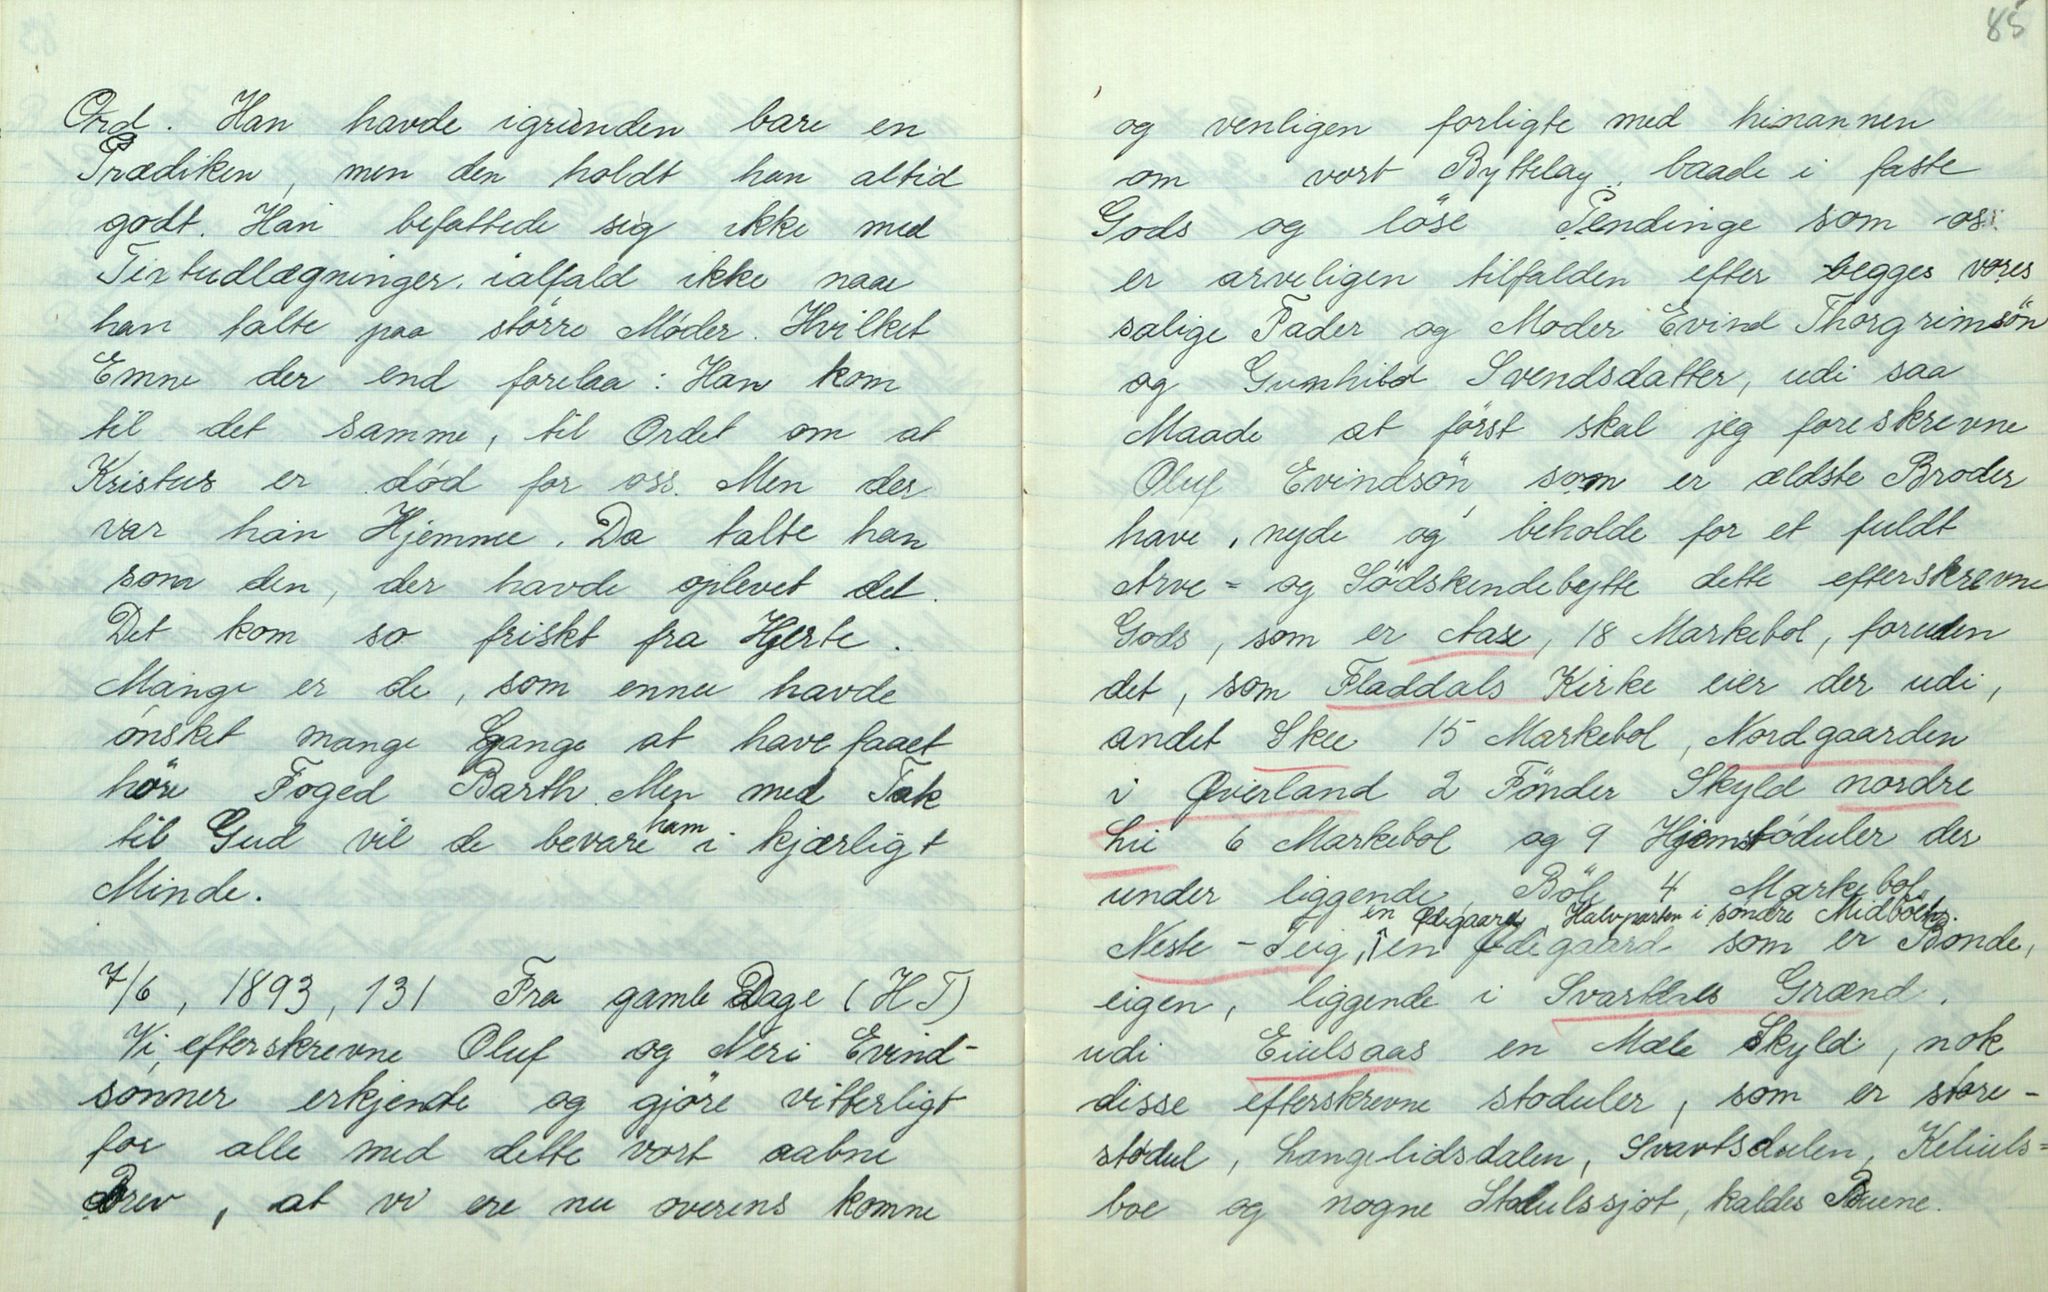 Ord. Han havde igrunden bare en
Prædiken, men den holdt han altid
godt. Han befattede sig ikke med
Textudlægninger, ialfald ikke naar
han talte paa större Møder. Hvilket
Emne der end forelaa: Han kom
til det samme, til Ordet om at
Kristus er död for oss. Men der
var han Hjemme. Da talte han
som den, der havde oplevet det.
Det kom so friskt fra Hjerte.
Mange er de, som ennu havde
önsket mange Gange at have faaet
høre Foged Barth. Men med Tak
til Gud vil de bevare ham i kjærligt
Minde.
7/6, 1893, 131 Fra gamle Dage (H T)
Vi efterskrevne Oluf og Neri Evind-
sönner erkjende og gjöre vitterligt
for alle med dette vort aabne
Brev, at vi ere nu overens komne
85
og venligen forligte med hinannen
om vort Byttelag, baade i faste
Gods og löse Pendinge som os
er arveligen tilfalden efter begges vores
salige Fader og Moder Evind Thorgrimsön
og Gunhild Svendsdatter, udi saa
Maade at först skal jeg foreskrevne
Oluf Evindsön, som er ældste Broder
have, nyde og beholde for et fuldt
Arve- og Södskendebytte dette efterskrevne
Gods, som er Aase, 18 Markebol, foruden
det, som Fladdals Kirke eier der udi,
andet Skee 15 Markebol, Nordgaarden
i Øverland 2 Tönder Skyld nordre
Lie 6 Markebol og 9 Hjemstöduler der
under liggende, Böle 4 Markebol,
en Ødegaard, Halvparten i söndre Midböen.
Neste-Teig, en Ødegaard som er Bonde,
eigen, liggende i Svartdals Grænd,
udi Eiulsaas en Mæle Skyld, nok
disse efterskrevne stöduler, som er store-
stödul, Langelidsdalen, Svartsdalen, Keliuls-
boe og nogne Stödulssjot, kaldes Buene.